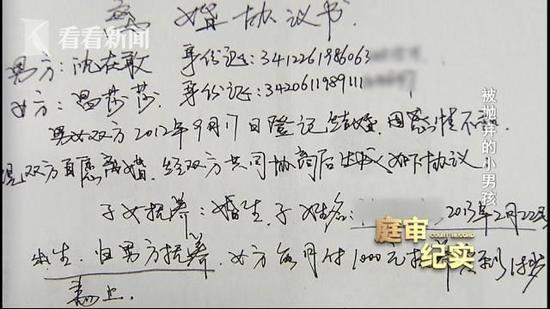 离婚协议书
看看新闻
男方：沈在敢 身份证：3412261986063
女方：温莎莎 身份证：342061198911
男女双方2012年9月17日登记结婚，因感情不和
现双方自愿离婚，经双方共同协商后达成如下协议
子女抚养：婚生子姓名： 2013年2月22日
出生，归男方抚养，女方每月付1000元抚养 到18岁
为止.
被抛弃的小男孩
庭审纪实
COURT RECORD